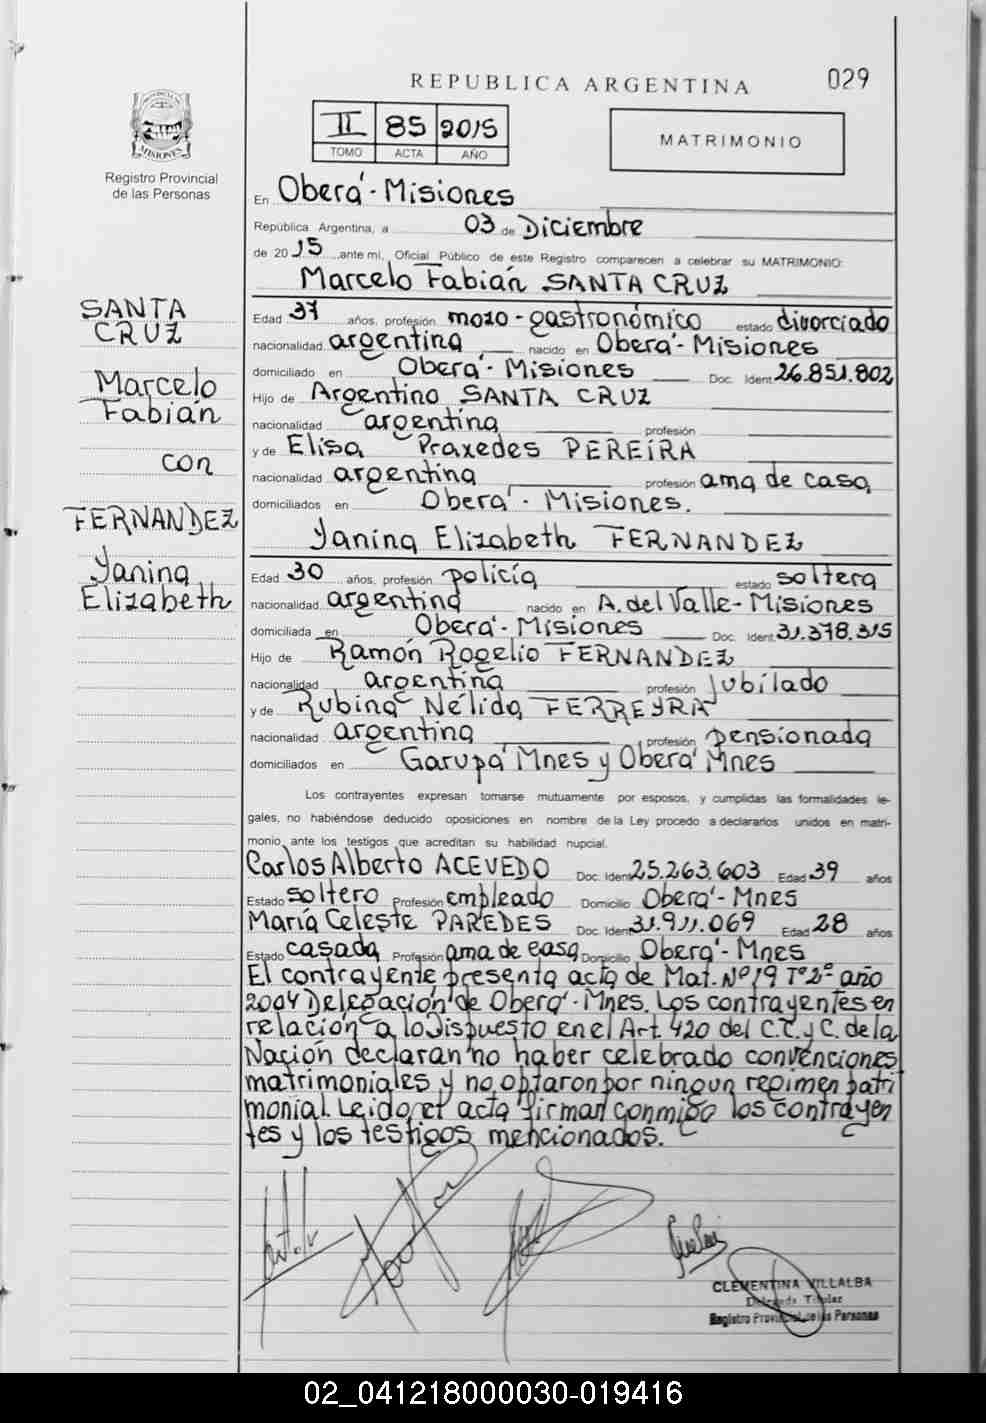 REPUBLICA ARGENTINA
029
II 85 2015
TOMO ACTA AÑO
MATRIMONIO
PROVINCIA
MISIONES
Registro Provincial
de las Personas
En Oberá - Misiones
República Argentina, a 03 de Diciembre
de 2015 ante mí, Oficial Público de este Registro comparecen a celebrar su MATRIMONIO:
Marcelo Fabián SANTA CRUZ
Edad 37 años, profesión mozo - gastronómico estado divorciado
nacionalidad argentina nacido en Oberá - Misiones
domiciliado en Oberá - Misiones Doc. Ident 26.851.802
Hijo de Argentino SANTA CRUZ
nacionalidad argentina profesión
y de Elisa Praxedes PEREIRA
nacionalidad argentina profesión ama de casa
domiciliados en Oberá - Misiones.
Yanina Elizabeth FERNANDEZ
Edad 30 años, profesión policía estado soltera
nacionalidad argentina nacido en A. del Valle - Misiones
domiciliada en Oberá - Misiones Doc. Ident. 31.378.315
Hijo de Ramón Rogelio FERNANDEZ
nacionalidad argentina profesión jubilado
y de Rubina Nélida FERREYRA
nacionalidad argentina profesión pensionada
domiciliados en Garupá Mnes y Oberá Mnes
Los contrayentes expresan tomarse mutuamente por esposos, y cumplidas las formalidades le-
gales, no habiéndose deducido oposiciones en nombre de la Ley procedo a declararlos unidos en matri-
monio ante los testigos que acreditan su habilidad nupcial.
Carlos Alberto ACEVEDO Doc. Ident 25.263.603 Edad 39 años
Estado soltero Profesión empleado Domicilio Oberá - Mnes
María Celeste PAREDES Doc. Ident 31.911.069 Edad 28 años
Estado casada Profesión ama de casa Domicilio Oberá - Mnes
El contrayente presenta acta de Mat. Nº 19 Tº 2º año
2004 Delegación de Oberá - Mnes. Los contrayentes en
relación a lo dispuesto en el Art. 420 del C.C. y C. de la
Nación declaran no haber celebrado convenciones
matrimoniales y no optaron por ningun regimen patri
monial. Leido el acta firman conmigo los contrayen
tes y los testigos mencionados.
SANTA
CRUZ
Marcelo
Fabián
con
FERNANDEZ
Yanina
Elizabeth
CLEMENTINA VILLALBA
Delegada Titular
Registro Provincial de las Personas
02_041218000030-019416